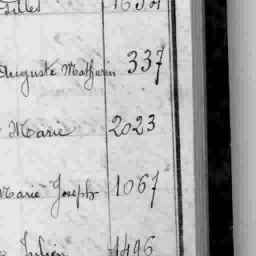 Gilles 1634
Auguste Mathurin 337
Marie 2023
Marie Joseph 1067
Julien 1496